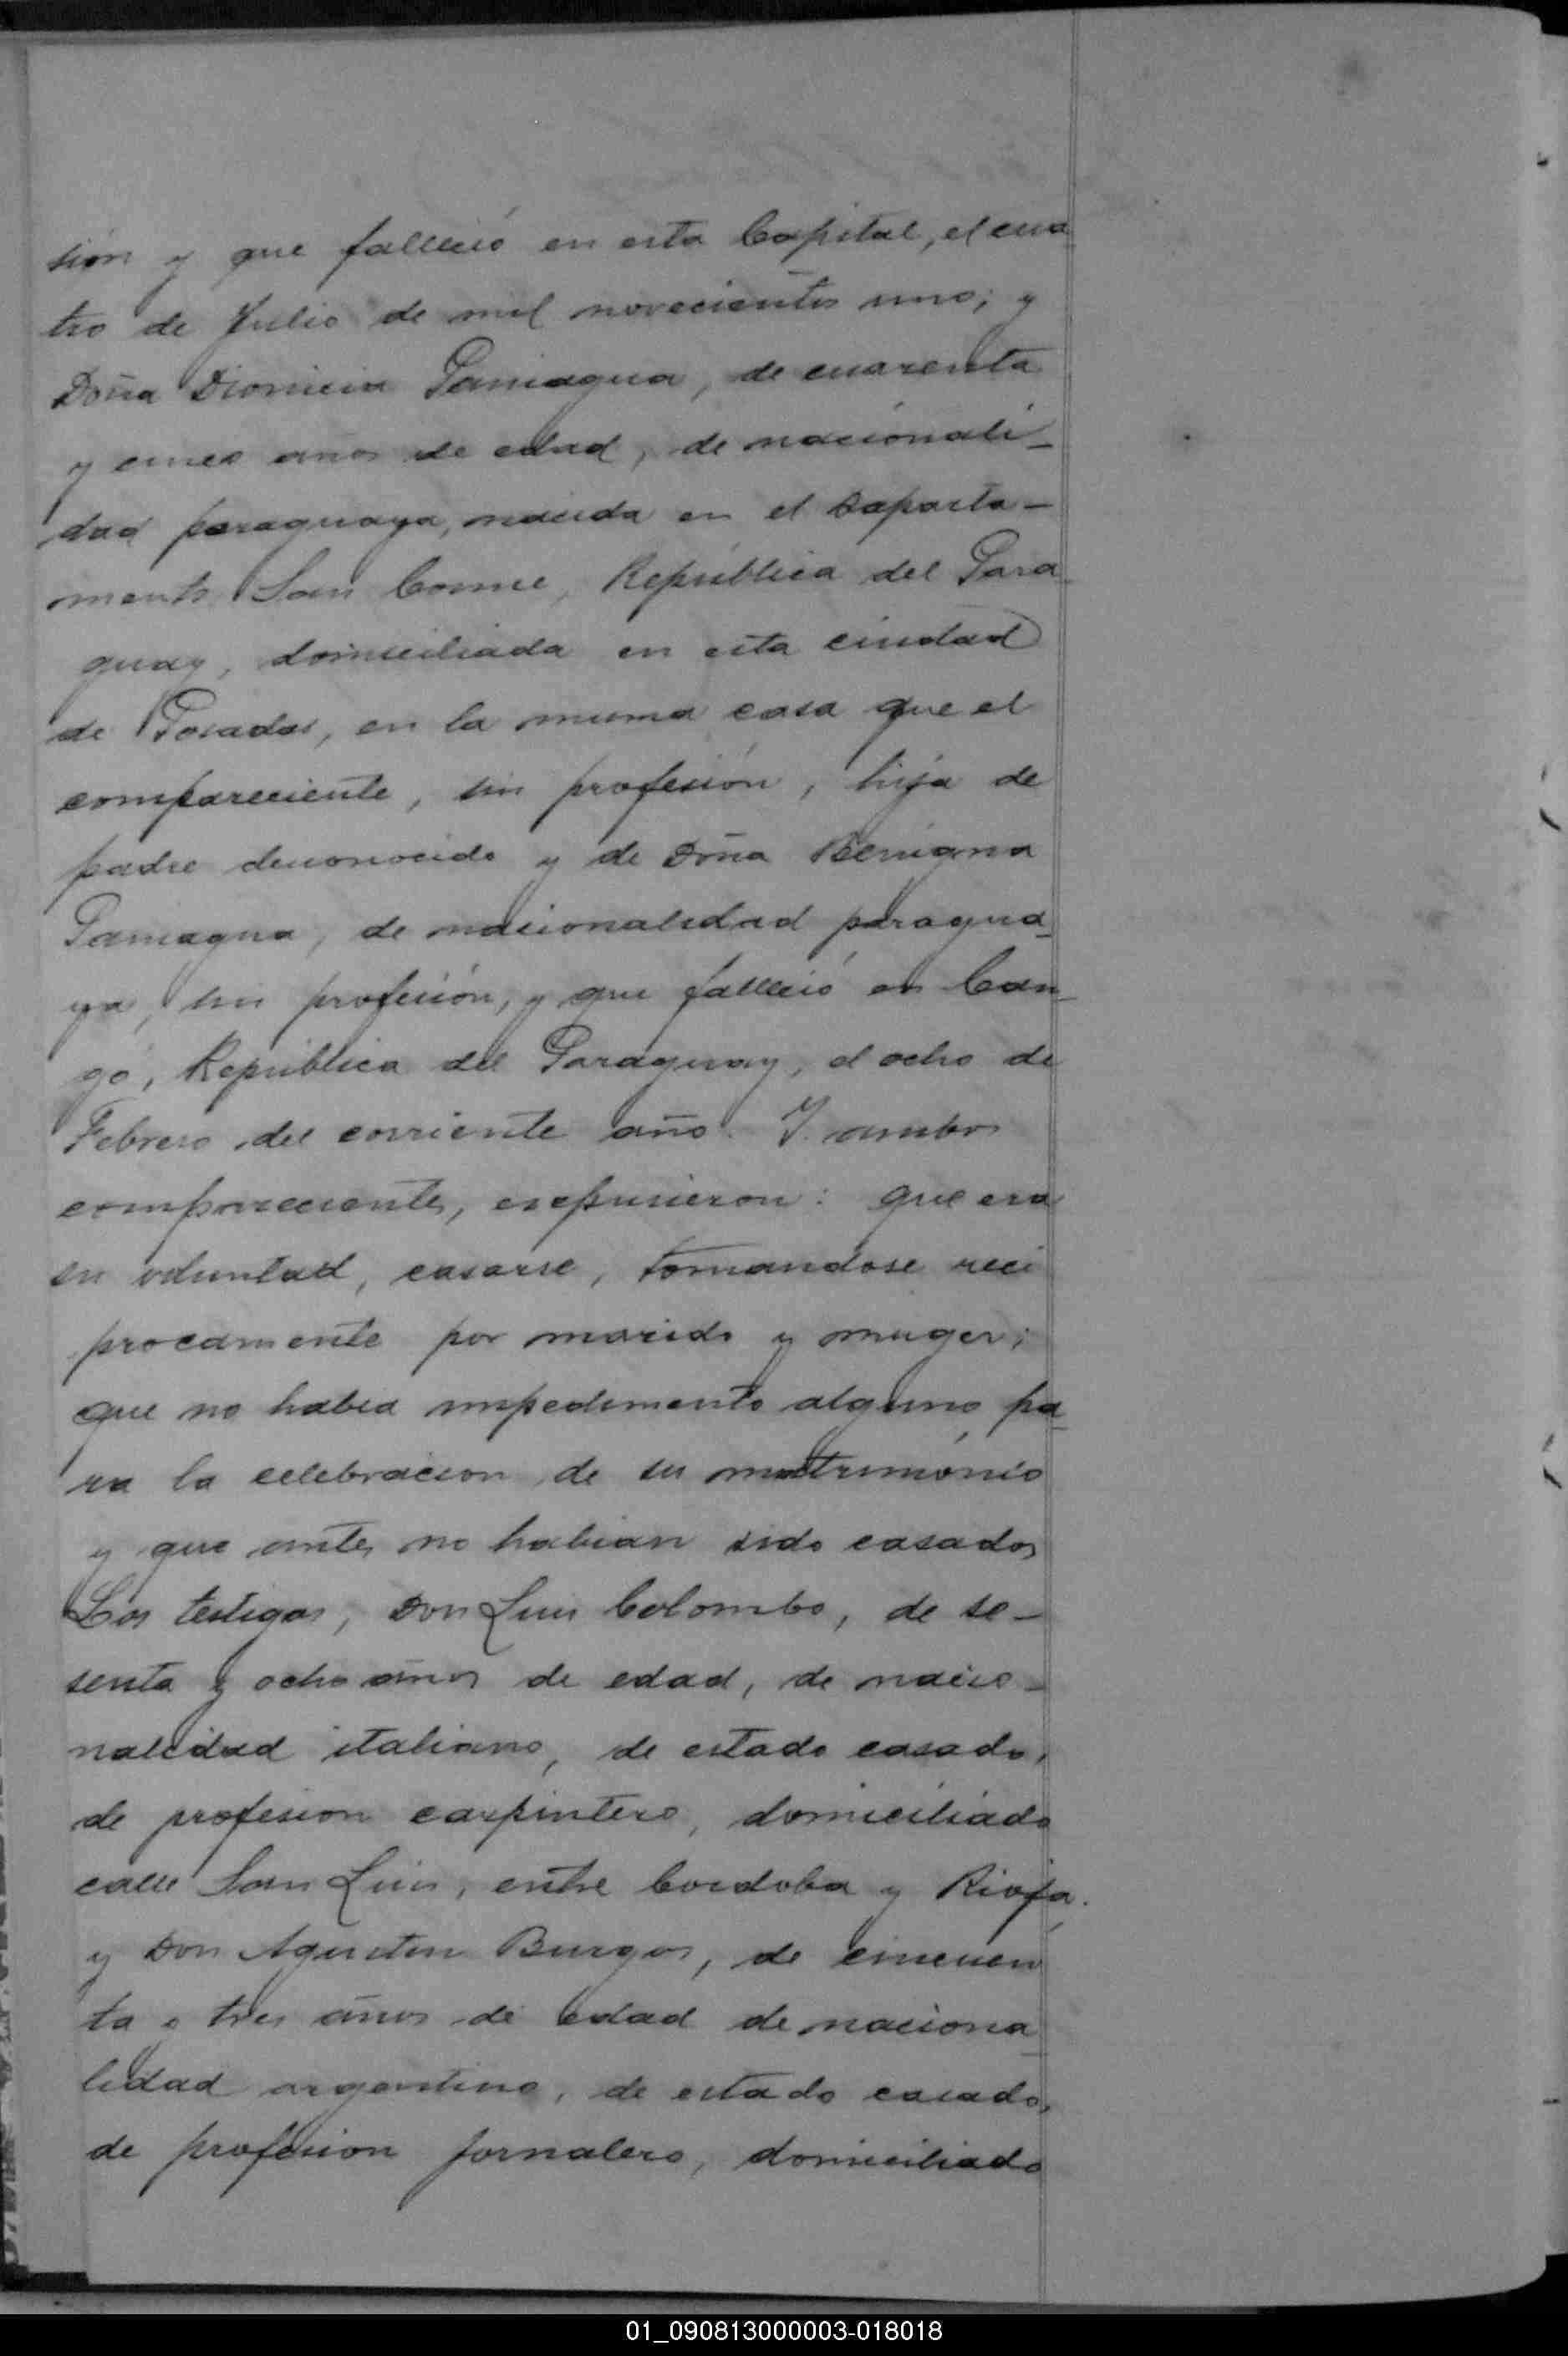 sión y que falleció en esta Capital, el cua
tro de Julio de mil novecientos uno; y
Doña Dionicia Paniagua, de cuarenta
y cinco años de edad, de nacionali-
dad paraguaya, nacida en el Departa-
mento San Cosme, República del Para
guay, domiciliada en esta ciudad
de Posadas, en la misma casa que el
compareciente, sin profesión, hija de
padre desconocido y de Doña Benigna
Paniagua, de nacionalidad paragua-
ya, sin profesión, y que falleció en Can-
gó, República del Paraguay, el ocho de
Febrero del corriente año. Y ambos
comparecientes, expusieron: que era
su voluntad, casarse, tomandose reci
procamente por marido y muger;
que no habia impedimento alguno, pa-
ra la celebracion de su matrimónio
y que antes no habian sido casados
Los testigos, Don Luis Colombo, de se-
senta y ocho años de edad, de nacio-
nalidad italiano, de estado casado,
de profesion carpintero, domiciliado
calle San Luis, entre Cordoba y Rioja.
y Don Agustin Burgos, de cincuen
ta y tres años de edad de naciona-
lidad argentino, de estado casado,
de profesion jornalero, domiciliado
01_090813000003-018018